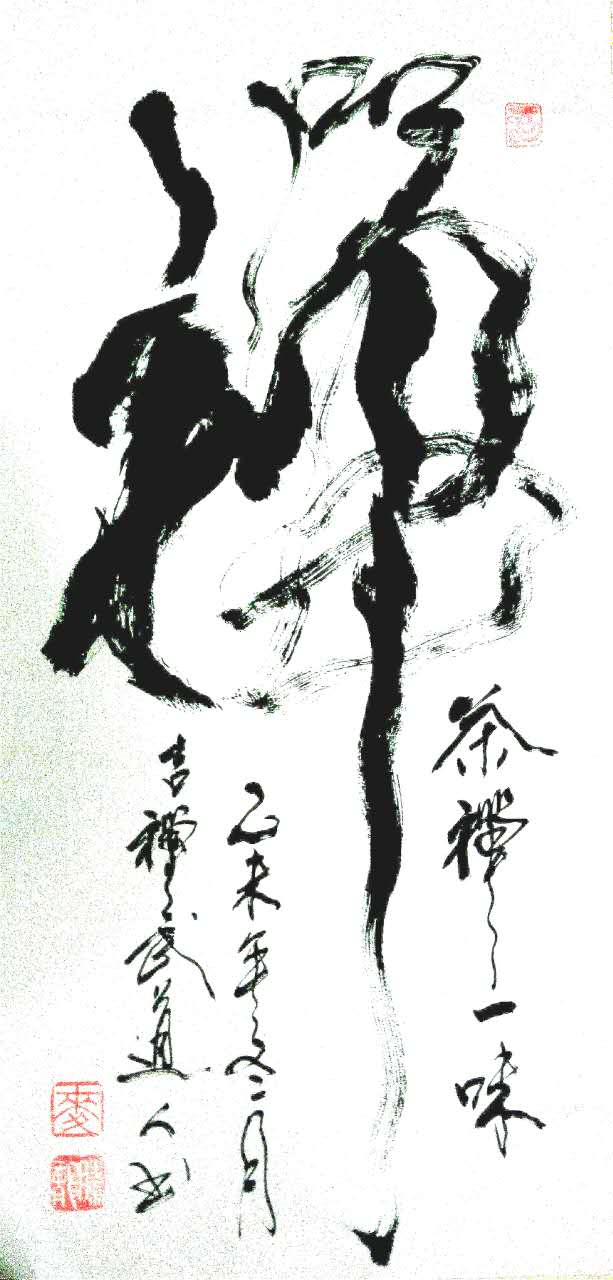 禪
茶禪一味
乙未年冬二月
吉禪武道人书